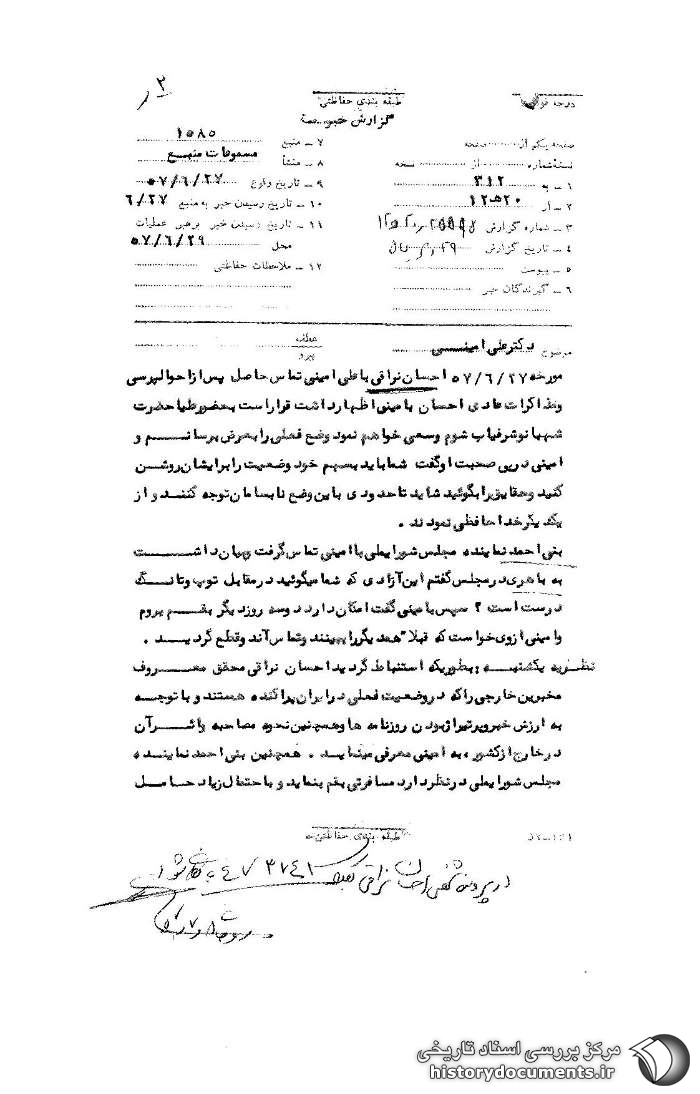 ۲
درجه فوریت
طبقه بندی حفاظتی
گزارش خبر
صفحه یک از صفحه
نسخه شماره از نسخه
۱ – به ۳۱۲
۲ – از ۲۰ ه ۱۲
۳ – شماره گزارش
۴ – تاریخ گزارش
۵ – پیوست
۶ – گیرندگان خبر
۷ – منبع ۱۰۸۵
۸ – منشأ مسموعات منبع
۹ – تاریخ وقوع ۵۷/۶/۲۷
۱۰ – تاریخ رسیدن خبر به منبع ۶/۲۷
۱۱ – تاریخ رسیدن خبر برهبر عملیات
محل ۵۷/۶/۲۹
۱۲ – ملاحظات حفاظتی
موضوع دکتر علی امینی
عطف
پیرو
مورخه ۵۷/۶/۲۷ احسان نراقی با علی امینی تماس حاصل پس از احوالپرسی
و مذاکرات عادی احسان با امینی اظهار داشت قرار است بحضور علیا حضرت
شهبانو شرفیاب شوم وسعی خواهم نمود وضع فعلی را بعرض برسانم و
امینی در پی صحبت او گفت شما باید بسهم خود وضعیت را برایشان روشن
کنید و حقایق را بگوئید شاید تا حدودی باین وضع نابسامان توجه کنند و از
یکدیگر خداحافظی نمودند .
بنی احمد نماینده مجلس شورایملی با امینی تماس گرفت و بیان داشت
به باهری در مجلس گفتم این آزادی که شما میگوئید در مقابل توپ و تانک
درست است ؟ سپس بامینی گفت امکان دارد دوسه روز دیگر بقم بروم
وامینی ازوی خواست که قبلا" همدیگر را ببینند و تماس آند وقطع گردید .
نظریه یکشنبه : بطوریکه استنباط گردید احسان نراقی محقق معروف
مخبرین خارجی را که در وضعیت فعلی در ایران پراکنده هستند و با توجه
به ارزش خبر و پرتیراژ بودن روزنامه ها و همچنین نحوه مصاحبه و نشر آن
در خارج از کشور ، به امینی معرفی مینماید . همچنین بنی احمد نماینده
مجلس شورایملی در نظر دارد مسافرتی بقم بنماید و با احتمال زیاد حامل
طبقه بندی حفاظتی
در پرونده احسان نراقی
مرکز بررسی اسناد تاریخی
historydocuments.ir